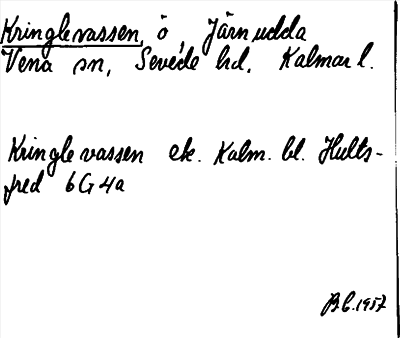 Kringlevassen, ö, Järnudda
Vena sn, Sevede hd, Kalmar l.
Kringlevassen ek. Kalm. bl. Hults-
fred 6G4a
B.C. 1957